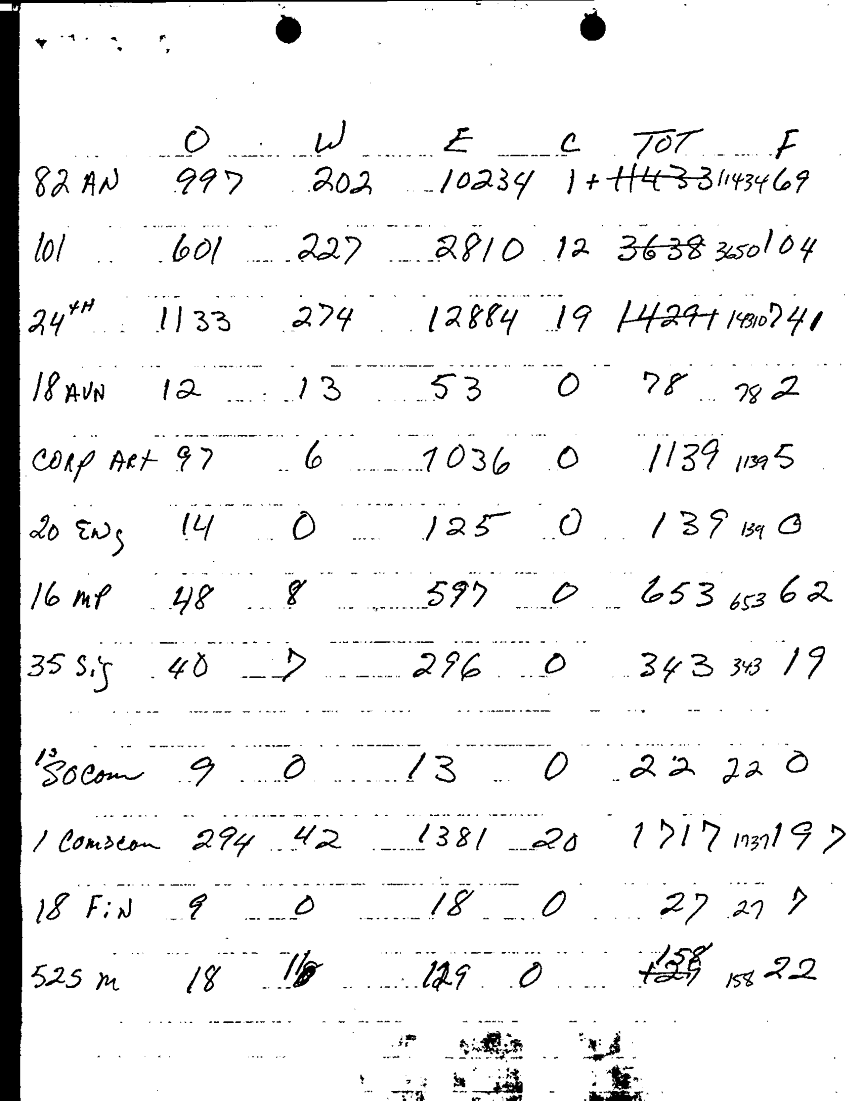 O W E C TOT F
82 AN 997 202 10234 1 + 11433 11434 69
101 601 227 2810 12 3638 3650 104
24TH 1133 274 12884 19 14291 14310 741
18 AVN 12 13 53 0 78 78 2
CORP ART 97 6 1036 0 1139 1139 5
20 ENg 14 0 125 0 139 139 0
16 MP 48 8 597 0 653 653 62
35 Sig 40 7 296 0 343 343 19
1st SOCom 9 0 13 0 22 22 0
1 Comscom 294 42 1381 20 1717 1737 197
18 FiN 9 0 18 0 27 27 7
525 m 18 11 129 0 158 158 22